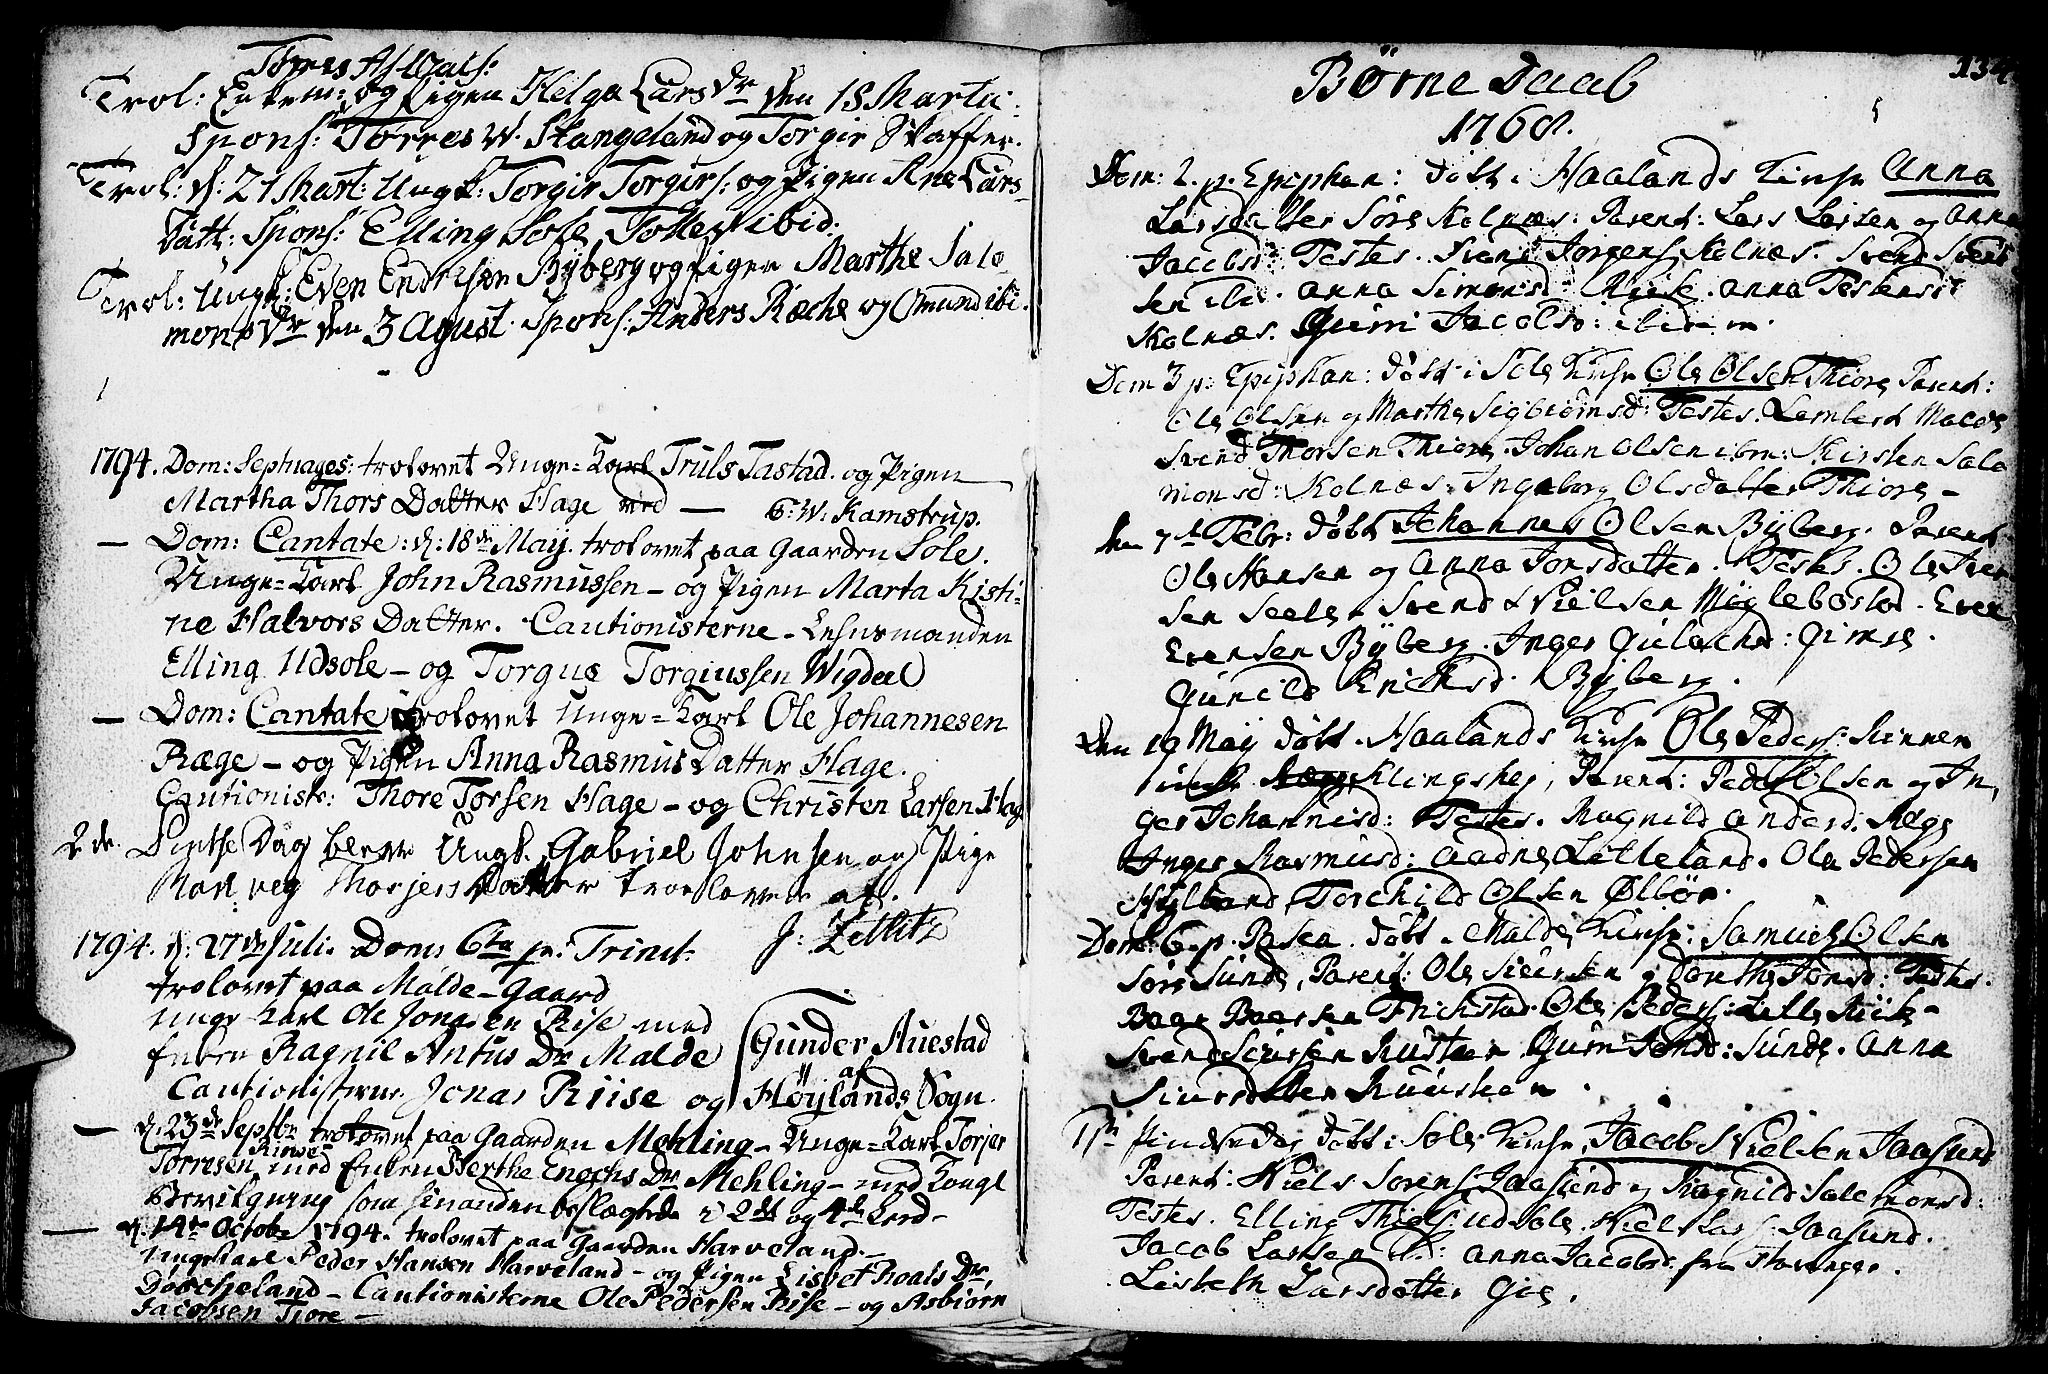 Tørres Aslacs:
Trol: Enkem: og Pigen Helga Lars Dr den 18 Martii.
Spons: Tørres V. Stangeland og Torgir Skaffer.
Trol: d: 21 Mart: Ungk: Torgir Torgirs: og Pigen Ane Lars
Datt: Spons: Elling Sole, Tollev ibid:
Trol: Ungk: Even Endresøn Byberg og Pigen Marthe Salo
mons Dr den 3 Agust. Spons: Anders Ræche og Omund ibi.
1794. Dom: Septuages: trolovet Unge=Karl Truls Tastad og Pigen
Martha Thors Datter Hage ved — C: W: Kamstrup.
— Dom: Cantate: d: 18de Maij. trolovet paa Gaarden Sole.
Unge=Karl John Rasmussen - og Pigen Marta Kisti=
ne Halvors Datter. Cautionisterne - Lehnsmanden
Elling Udsole - og Torgus Torgiussen Wigdel
— Dom: Cantate trolovet Unge=Karl Ole Johannesen
Ræge - og Pigen Anna Rasmus Datter Hage.
Cautionist: Thore Torsen Hage - og Christen Larsen Hag
2 de. Pintse Dag blev Ungk. Gabriel Johnsen og Pige
Thorjers Datter troelovede af.
J: Zetlitz
1794. d: 27de Juli. Dom: 6ta p: Trinit:
trolovet paa Malde-Gaard
Unge Karl Ole Jonasen Rise med
Enken Ragnil Antus Dr Malde
Cautionisterne Jonas Riise og Gunder Auestad
af Høylands Sogn.
— d. 23de Septbr trolovet paa Gaarden Mehling - Unge=Karl Torjer
Torresen med Enken Berthe Enochs Dr Mehling - med Kongl
Bevilgning som hinanden beslægtede i 2det og 4de Leed-
— d. 14de Octobr 1794. trolovet paa Gaarden Harveland. -
Ungekarl Peder Hansen Harveland - og Pigen Lisbet Roals Dr,
Dorcheland - Cautionisterne Ole Pedersen Rise - og Asbiørn
Jacobsen Tiore -
134
Børne Daab
1768.
Dom: 2. p. Epiphan: døbt i Haalands Kirke Anna
Larsdatter Søre Kolnæs: Parent: Lars Larsen og Anna
Jacobsd: Testes. Svend Jorgens Kolnæs. Svend Svend
sen ibi. Anna Simonsd: Kolnæs. Anna Testensd
Kolnæs. Guri Jacobsd: ibidem.
Dom 3 p: Epiphan: døbt i Sole Kirke Ole Olsen Thiore Parent:
Ole Olsen og Marthe Sigbiørnsd: Testes. Lambert Malde
Svend Thorsen Thiore. Johan Olsen ibm: Kirsten Salo
monsd: Kolnæs. Ingeborg Olsdatter Thiore -
den 7de Febr: døbt Johannes Olsen Byberg. Parent
Ole Hansen og Anna Jonsdatter. Testes. Ole Iver
sen Seele. Svend Nielsen Myglebostad. Even
Evensen Byberg. Inger Gulachsd: Gimre.
Gunild Erichsd. Byberg.
Den 19 Maij døbt. Haalands Kirke Ole Peders: Rennen
Klingshej, Parent: Peder Olsen og In,
ger Johannisd: Testes. Ragnild Andersd: Ræge
Inger Rasmusd: Aadne Litleland. Ole Pedersen
Torchild Olsen Ølbør.
Dom: 6. p. Pasca. døbt. Malde Kirke: Samuel Olsen
Søre Sunde, Parent: Ole Siursen og Dorethe Jonsd: Testes.
Baar Baarsen Frichstad. Ole Peders: Lille
Svend Siursen Guri Jonsd: Sunde. Anna
Siursdatter
Pindsedag døbt i Sole Kirke Jacob Nielsen Jaasund
Parent: Niels Sorens: Jaasund og Ragnild Salomonsd:
Testes. Elling Thiels: Udsole. Niel Lars: Jaasund.
Jacob Larsen ib: Anna Jacobsd. fra Stavanger.
Lisbeth Larsdatter Gie.